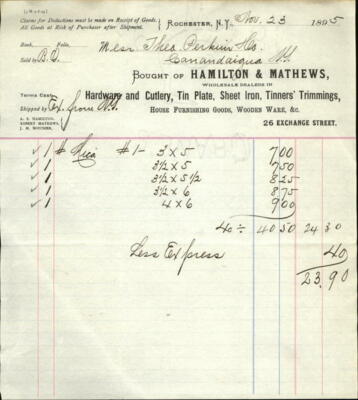 Claims for Deductions must be made on Receipt of Goods.
All Goods at Risk of Purchaser after Shipment.
ROCHESTER, N.Y. Nov. 23 1895
Book, Folio,
Messr Theo. Perkins Co.
Sold by B.O.
Canandaigua NY
BOUGHT OF HAMILTON & MATHEWS,
WHOLESALE DEALERS IN
Terms Cash
Hardware and Cutlery, Tin Plate, Sheet Iron, Tinners' Trimmings,
Shipped by Ex.
HOUSE FURNISHING GOODS, WOODEN WARE, &c.
A. S. HAMILTON,
ROBERT MATHEWS,
26 EXCHANGE STREET.
✓ 1 # Mica #1- 3 x 5 700
✓ 1 3½ x 5 750
✓ 1 3½ x 5½ 825
✓ 1 3½ x 6 875
✓ 1 4 x 6 900
40 ÷ 40 50 24 30
Less Express 40
23.90